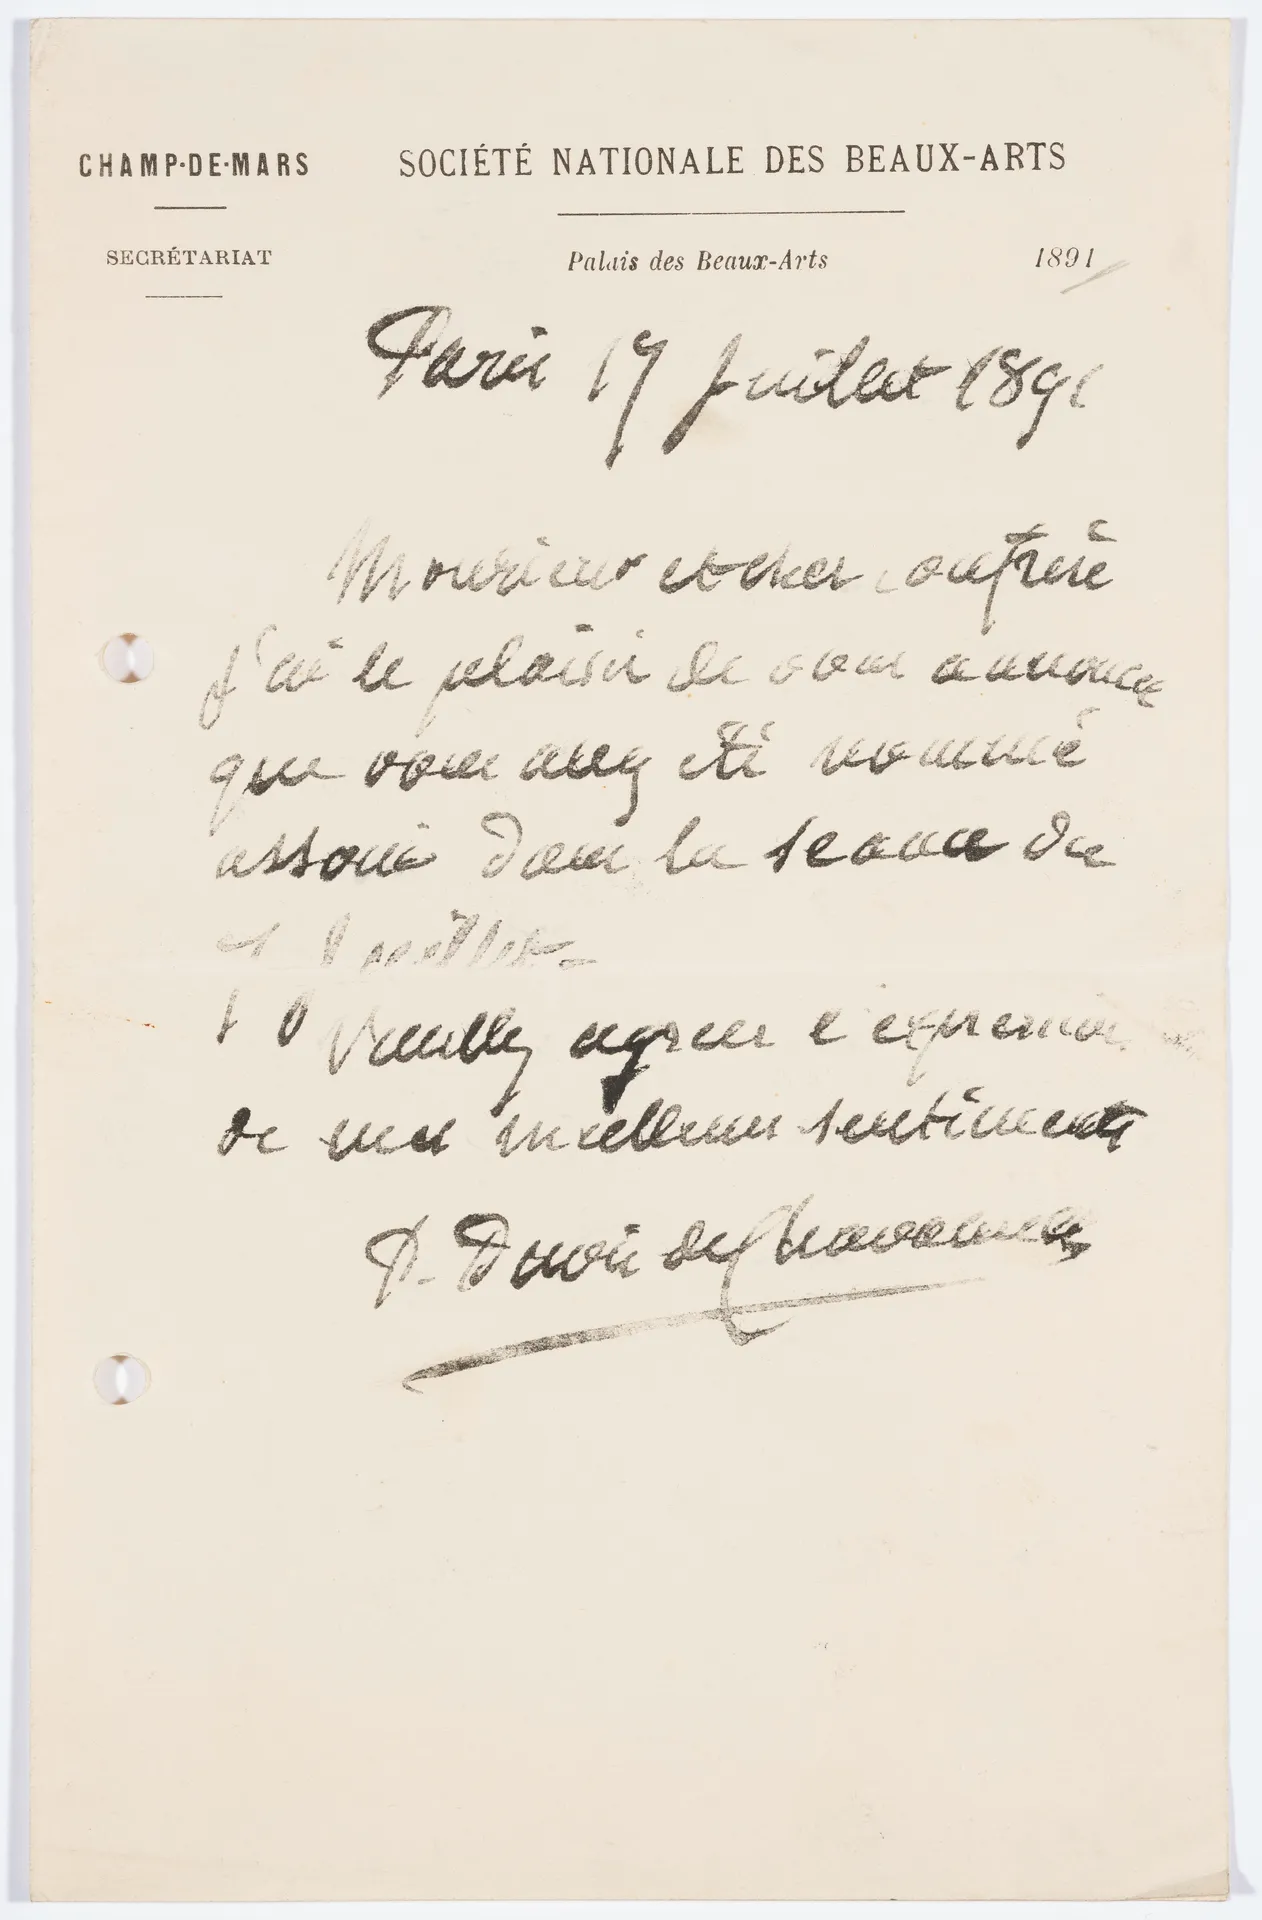 CHAMP·DE·MARS
SOCIÉTÉ NATIONALE DES BEAUX-ARTS
SECRÉTARIAT
Palais des Beaux-Arts 1891
Paris 17 Juillet 1891
Monsieur et cher confrère
J'ai le plaisir de vous annoncer
que vous avez été nommé
associé dans la seance du
Juillet.
Veuillez agreer l'expression
de mes excellents sentiments
P. Puvis de Chavannes